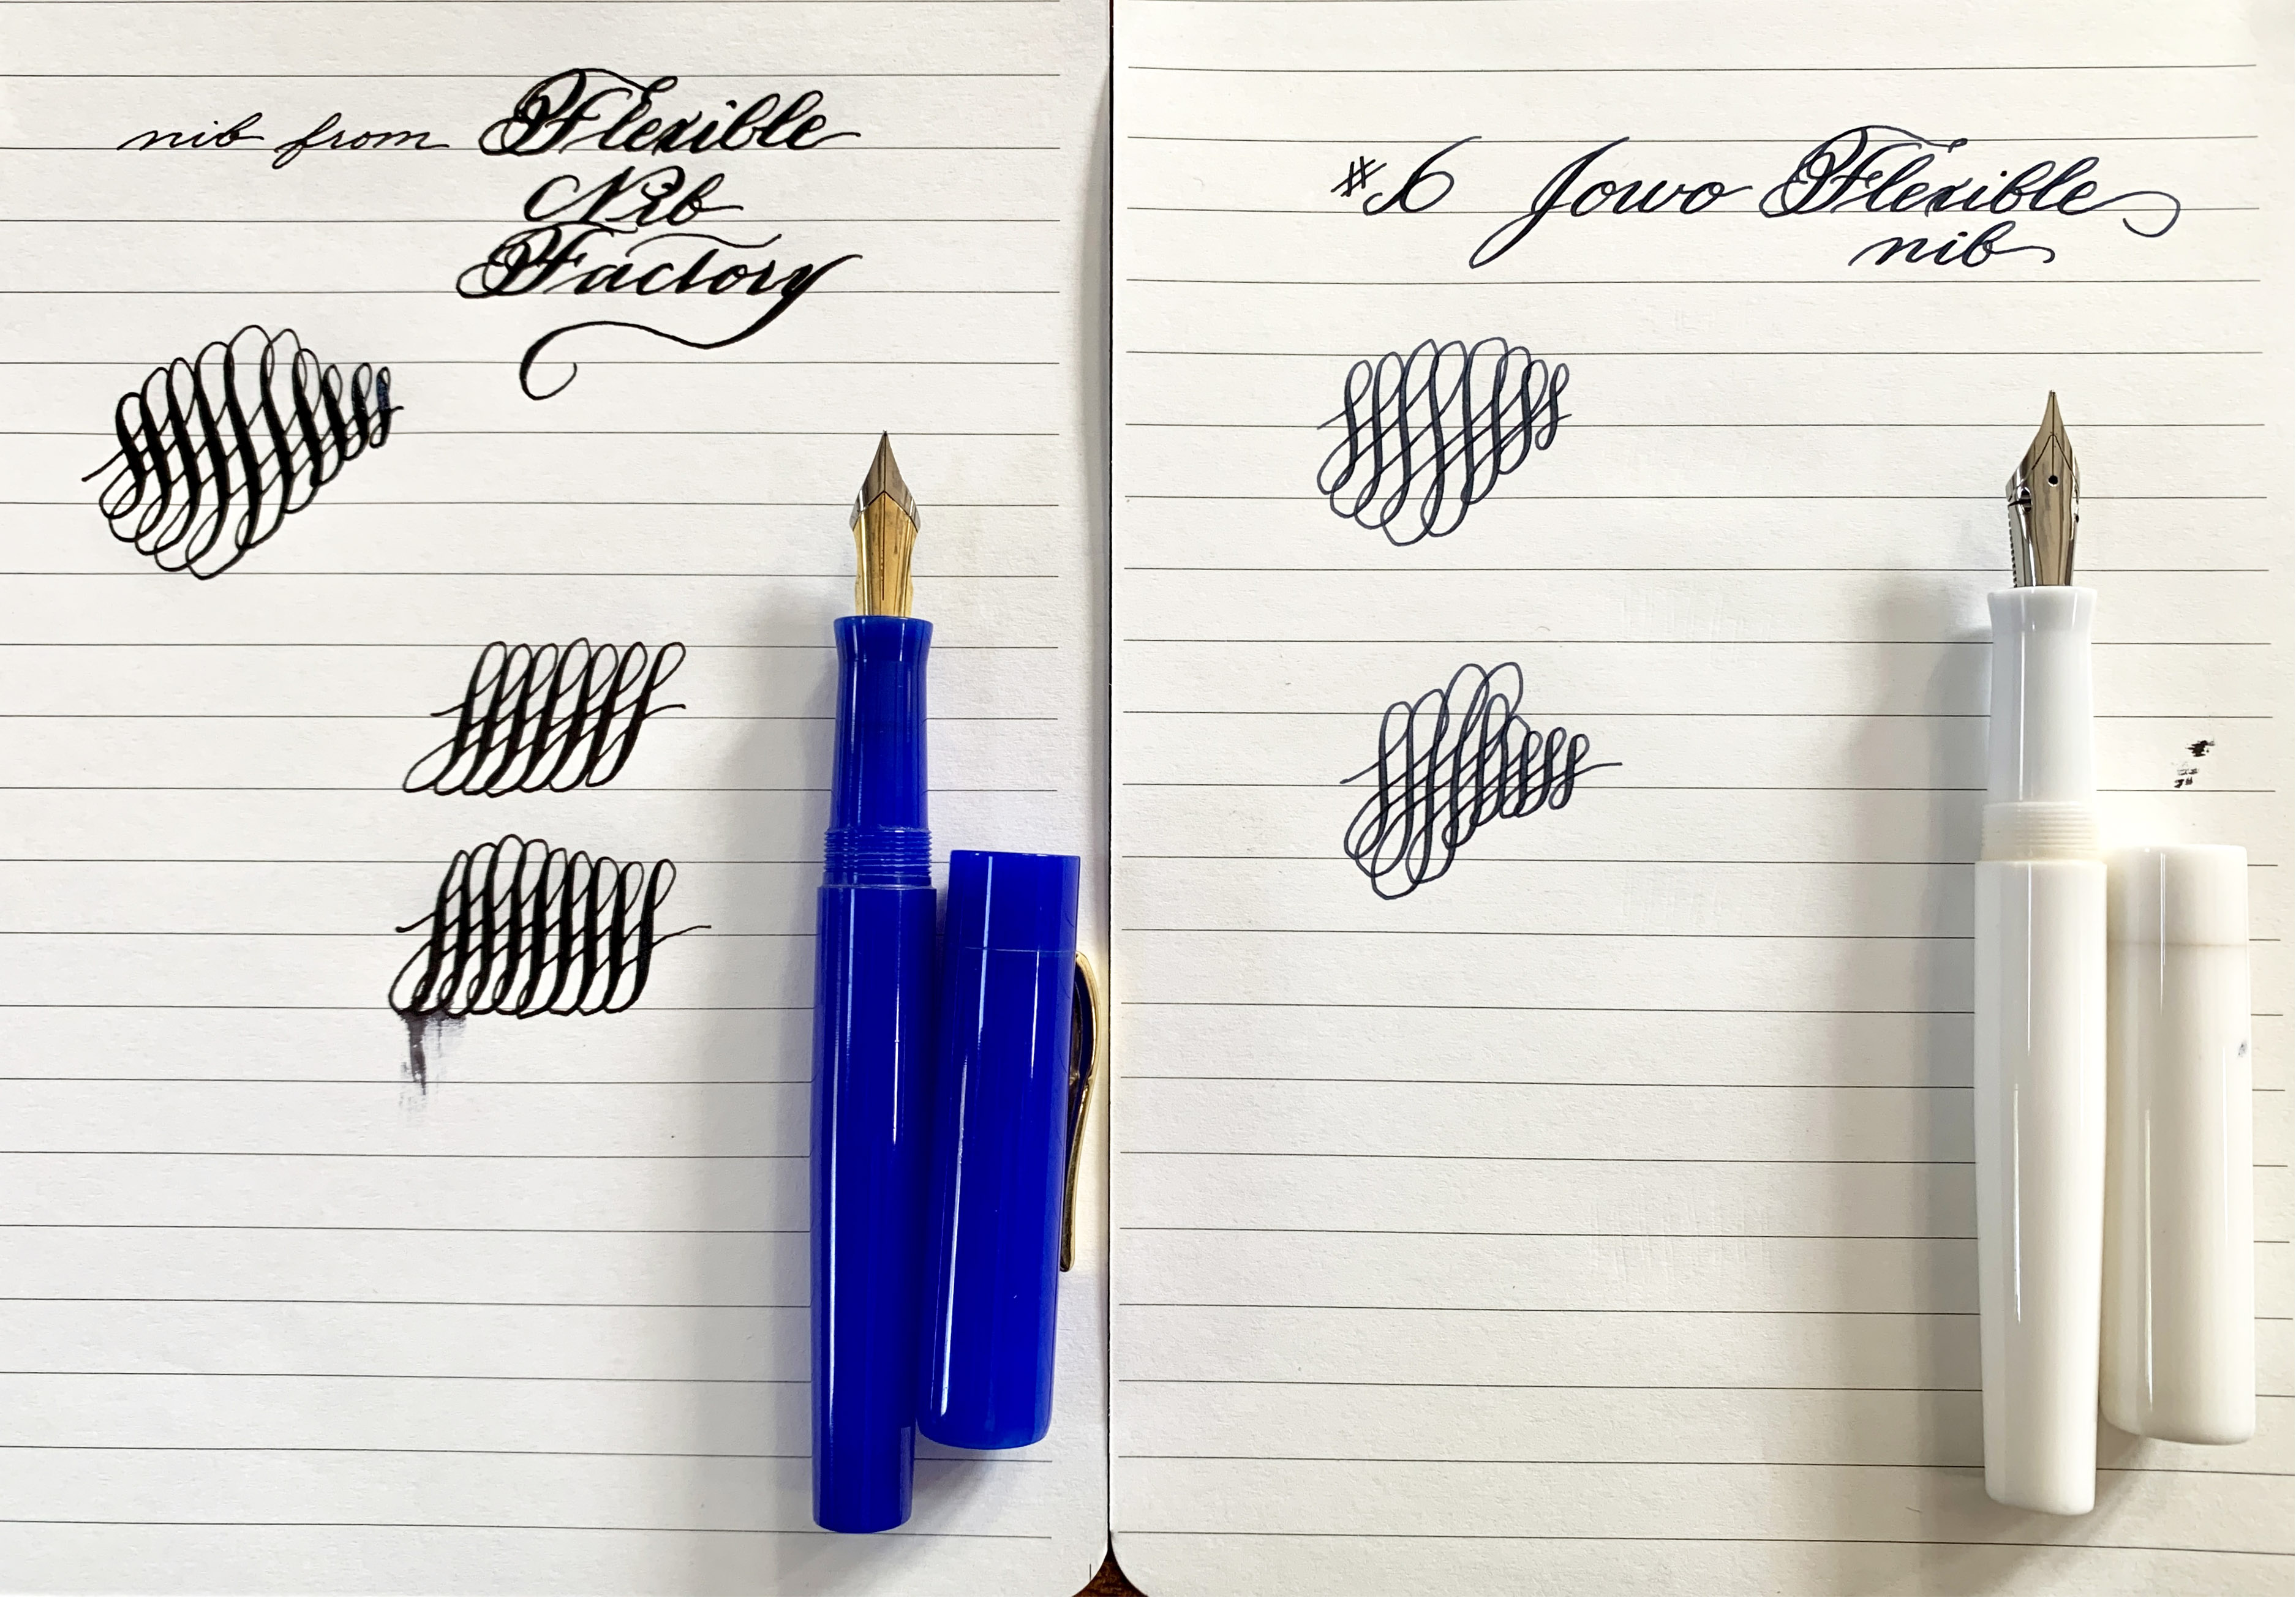 nib from Flexible
Nib
Factory
#6 Jowo Flexible
nib